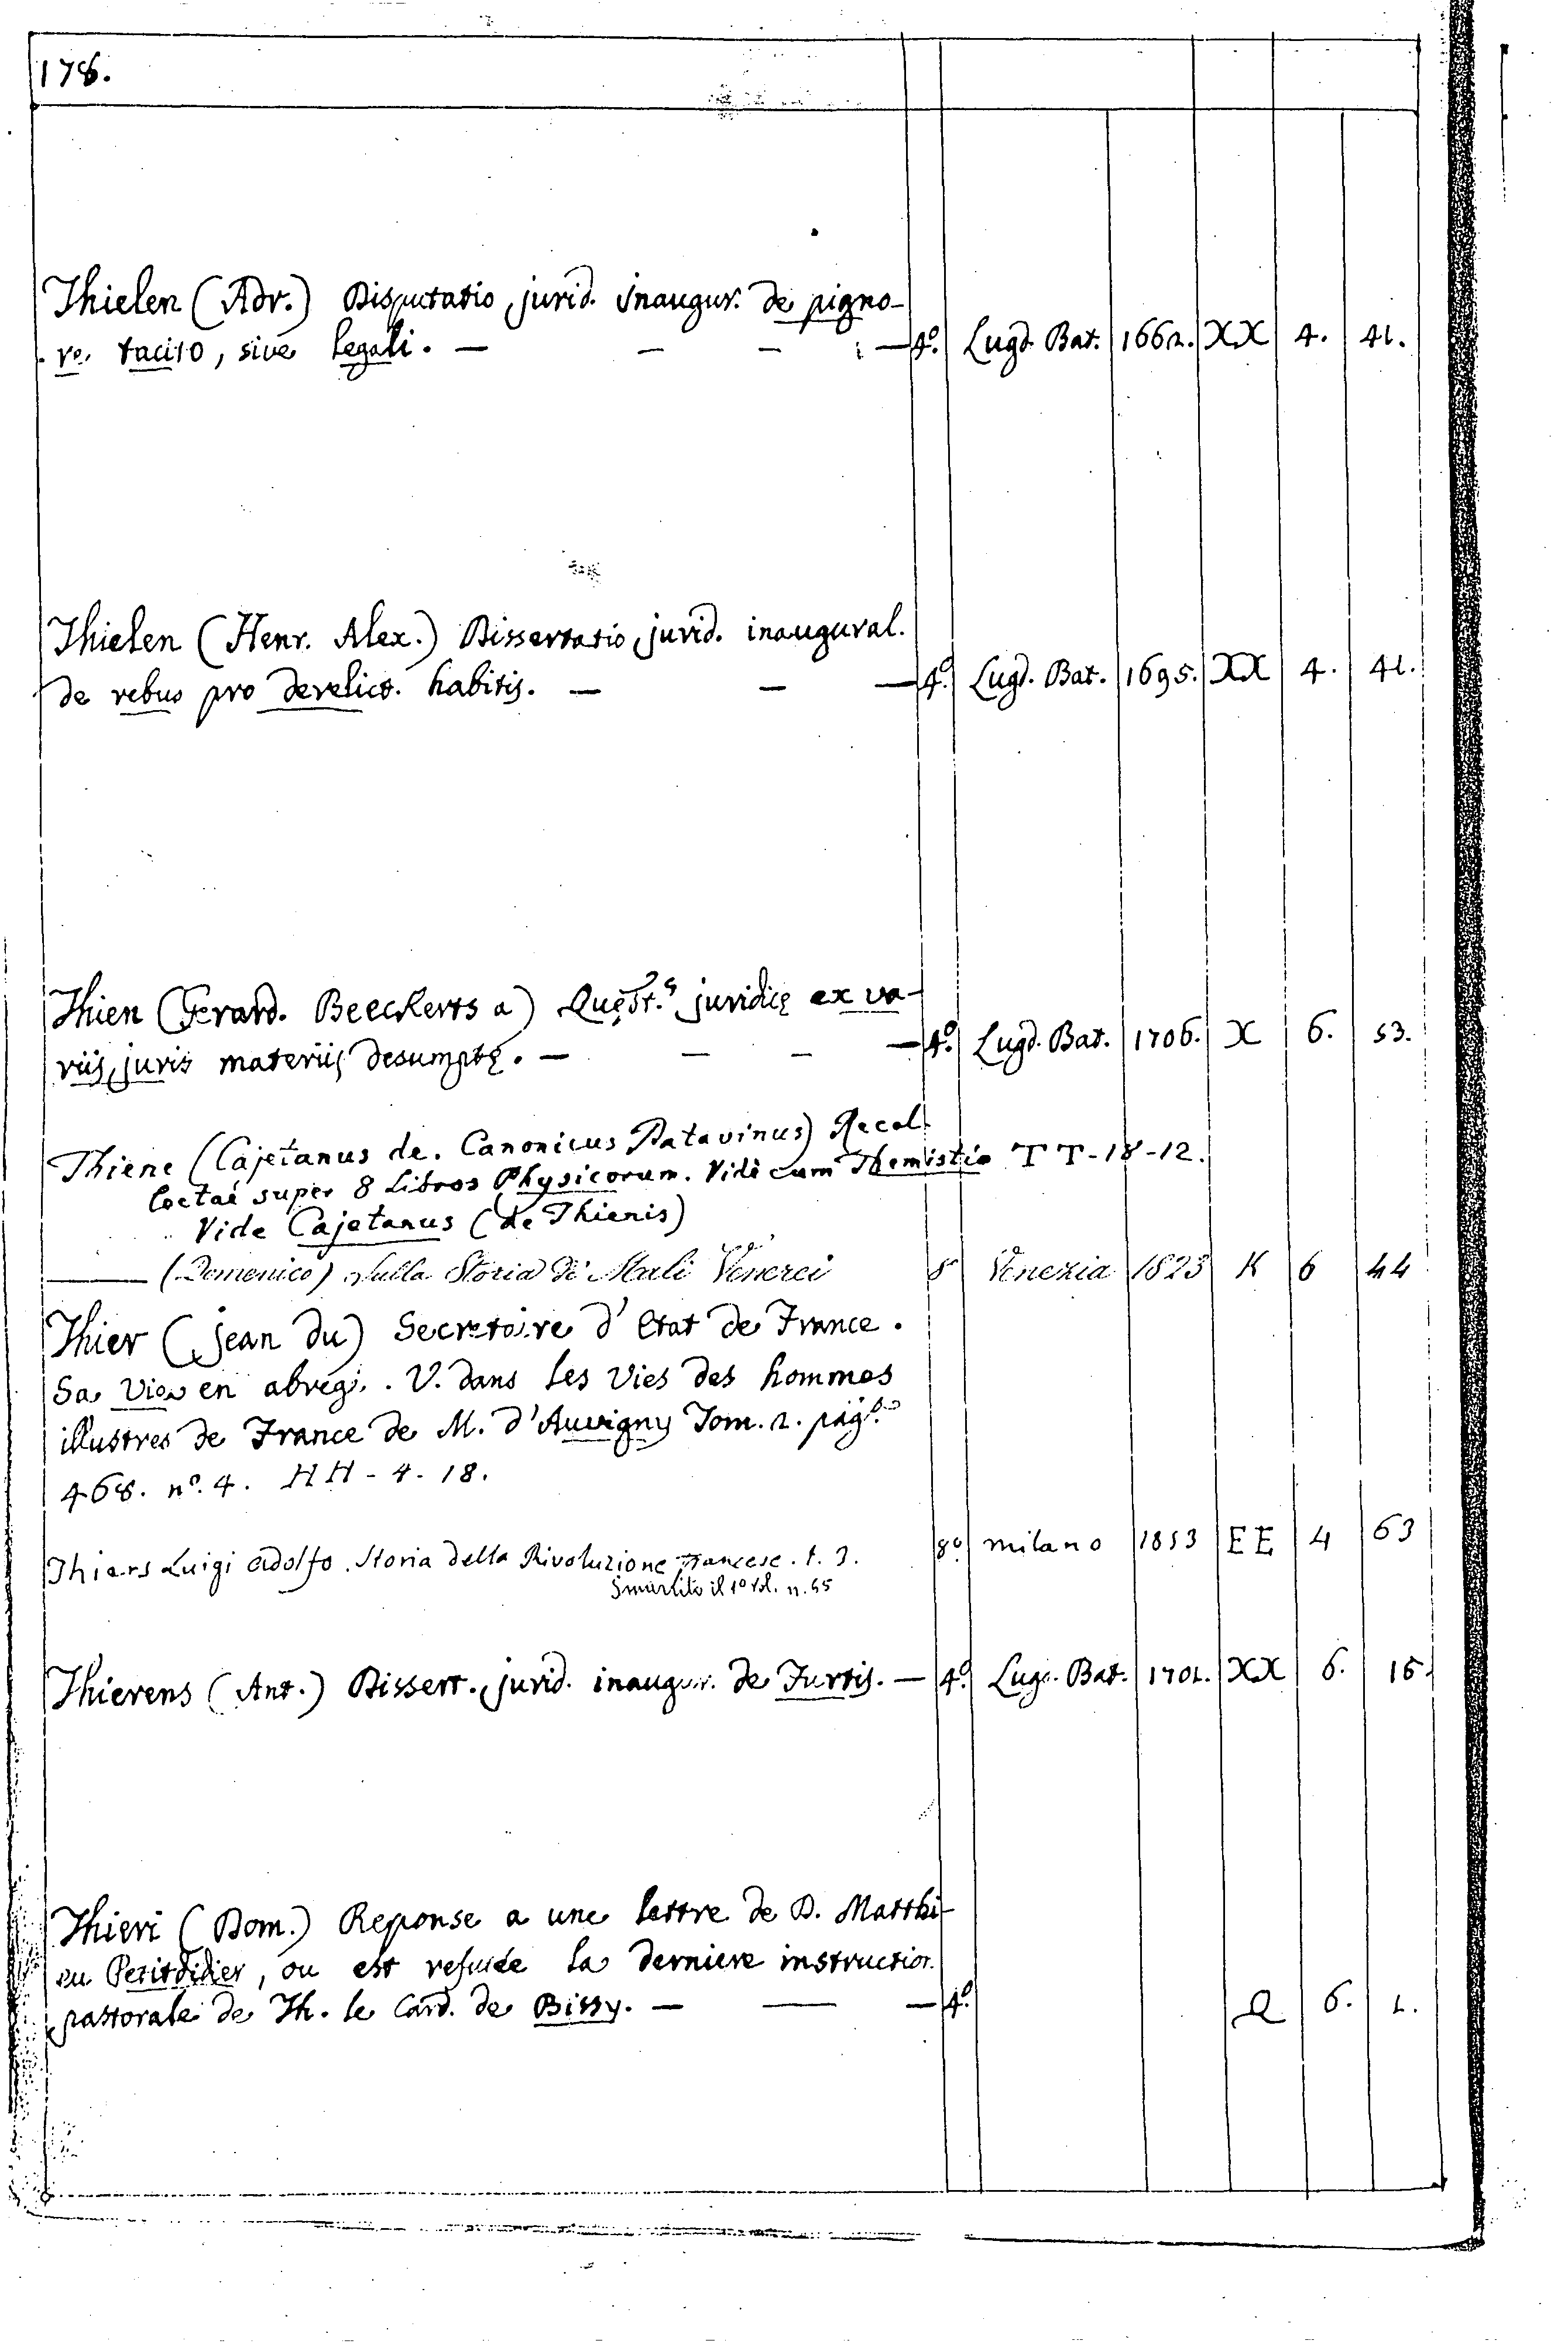 178.
Thielen (Adr.) Disputatio jurid. inaugur. de pigno-
re tacito, sive legali. — — — — 4º. Lugd. Bat. 1662. XX 4. 41.
Thielen (Henr. Alex.) Dissertatio jurid. inaugural.
de rebus pro derelict. habitis. — — — 4º. Lugd. Bat. 1695. XX 4. 41.
Thien (Gerard. Beeckerts a) Quęst.s juridicę ex va-
riis juris materiis desumptę. — — — — 4º. Lugd. Bat. 1706. X 6. 53.
Thiene (Cajetanus de. Canonicus Patavinus) Recol
lectae super 8 Libros Physicorum. Vide cum Themistio TT-18-12.
Vide Cajetanus (de Thienis)
—— (Domenico) Sulla Storia de' Mali Venerei 8º Venezia 1823 K 6 44
Thier (Jean du) Secretaire d'Etat de France.
Sa Vie en abregé. V. dans les Vies des hommes
illustres de France de M. d'Auvigny Tom. 2. pag.
468. nº. 4. HH-4-18.
Thiers Luigi Adolfo. Storia della Rivoluzione Francese. t. 3. 8º. Milano 1853 EE 4 63
Smarrito il 1º Vol. n. 65
Thierens (Ant.) Dissert. jurid. inaugur. de Furtis. — 4º. Lugd. Bat. 1701. XX 6. 16.
Thieri (Dom.) Reponse a une lettre de D. Matthi-
eu Petitdidier, ou est refutée la derniere instruction
pastorale de Th. le Card. de Bissy. — — — 4º. Q 6. 1.